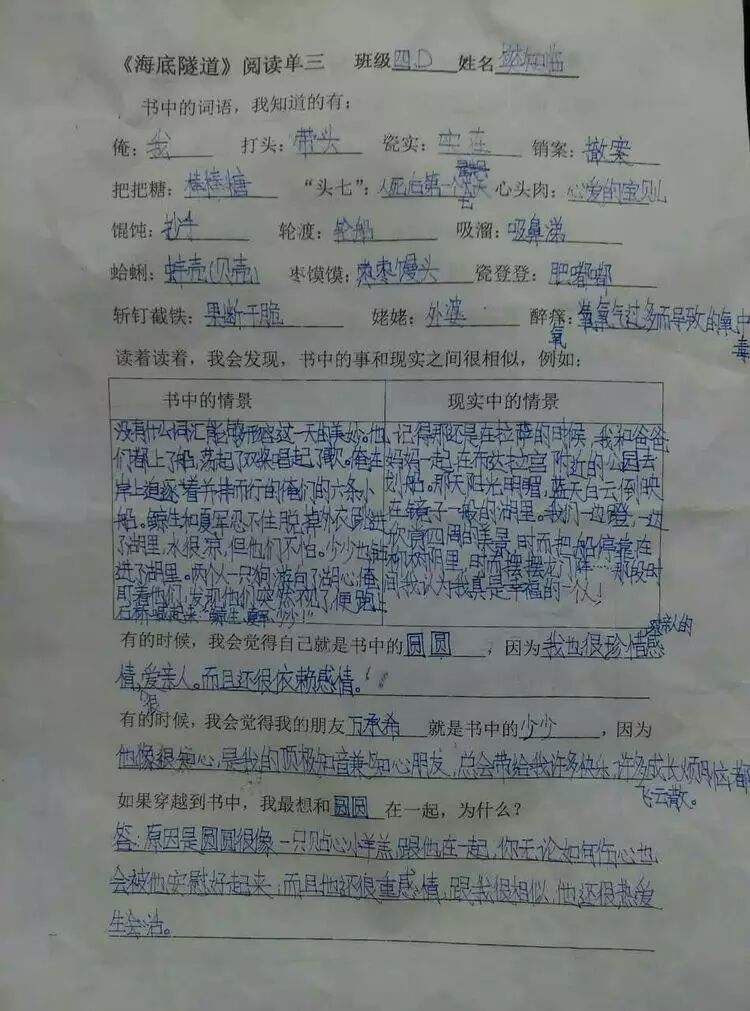 《海底隧道》阅读单三 班级四.D 姓名
书中的词语，我知道的有：
俺：我 打头：带头 瓷实：实在 销案：撤案
把把糖：棒棒糖 “头七”：人死后第一个七天 心头肉：心爱的宝贝儿
馄饨：抄手 轮渡：轮船 吸溜：吸鼻涕
蛤蜊：蚌壳(贝壳) 枣馍馍：枣枣馒头 瓷登登：肥嘟嘟
斩钉截铁：果断干脆 姥姥：外婆 醉氧：氧氧气过多而导致的氧中
氧 毒
读着读着，我会发现，书中的事和现实之间很相似，例如：
书中的情景 现实中的情景
没有什么词汇能够形容这一天的美妙。他
们都上了船，荡起了双桨唱起了歌。俺在
岸上追逐着并排而行的俺们的六条小
船。鲸生和夏军忍不住脱掉外衣跳进
了湖里，水很凉，但他们不怕。少少也
进了湖里。两个人一只狗，游向了湖心，俺
盯着他们，发现他们突然不见了，便跑上
石桥喊起来
记得那还是在拉萨的时候，我和爸爸
妈妈一起，在布达拉宫附近的公园去
划船。那天阳光明媚，蓝天白云倒映
在镜子一般的湖里。我们一边蹬，一边
欣赏四周的美景，时而把船停靠在
树阴里，时而摆摆龙门阵……那段时
间，我认为我真是幸福的一个人！
有的时候，我会觉得自己就是书中的圆圆，因为我也很珍惜感
情，爱亲人。而且还很依赖感情。
很
有的时候，我会觉得我的朋友万承希就是书中的少少，因为
他像很知心，是我的顶极知音兼知心朋友，总会带给我许多快乐，许多成长烦恼都
飞云散。
如果穿越到书中，我最想和圆圆在一起，为什么？
答：原因是圆圆很像一只贴心小洋羔，跟他在一起，你无论如何伤心也
会被他安慰好起来，而且他还很重感情，跟我很相似，他还很热爱
生活。